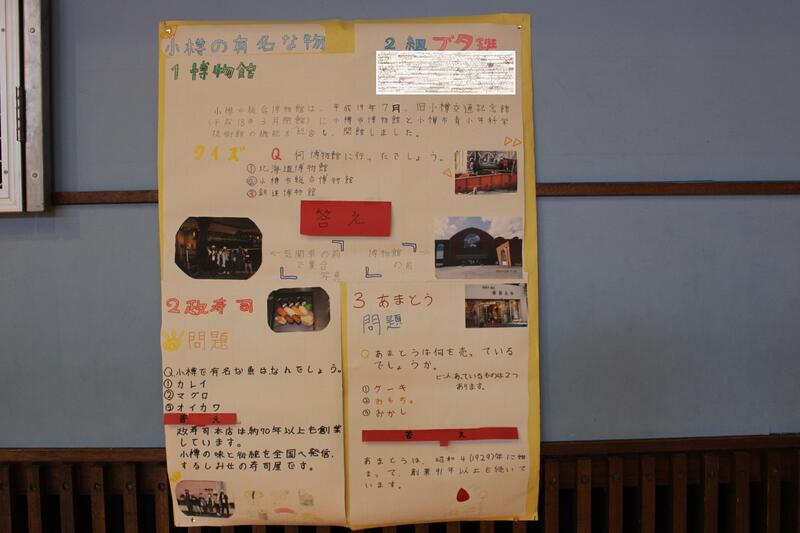 小樽の有名な物
2組ブタ班
1博物館
小樽市総合博物館は、平成19年7月、旧小樽交通記念館
(平成18年3月閉館)に小樽市博物館と小樽市青少年科学
技術館の機能を統合し、開館しました。
クイズ
Q 何博物館に行ったでしょう。
①北海道博物館
②小樽市総合博物館
③鉄道博物館
答え
←気関車の前
で集合
写真
博物館→
の前
2政寿司
問題
Q小樽で有名な魚はなんでしょう。
①カレイ
②マグロ
③オイカワ
答え
政寿司本店は約70年以上も創業
しています。
小樽の味と伝統を全国へ発信
するしみせの寿司屋です。
3あまとう
問題
Qあまとうは何を売っている
でしょうか。
ヒントあっているものは2つ
あります。
①ケーキ
②おもち。
③おかし
答え
あまとうは、昭和4(1929)年に始
まって、創業91年以上も続いて
います。